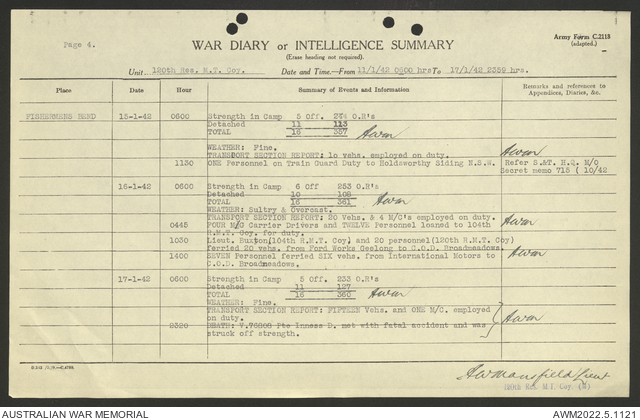 Page 4.
WAR DIARY or INTELLIGENCE SUMMARY
(Erase heading not required).
Army Form C.2118
(adapted.)
Unit 120th Res. M.T. Coy. Date and Time—From 11/1/42 0600 hrs To 17/1/42 2359 hrs.
Place Date Hour Summary of Events and Information Remarks and references to Appendices, Diaries, &c.
FISHERMENS BEND 15-1-42 0600 Strength in Camp 5 Off. 244 O.R's
Detached 11 113
TOTAL 16 357
WEATHER: Fine.
TRANSPORT SECTION REPORT: 10 vehs. employed on duty.
1130 ONE Personnel on Train Guard Duty to Holdsworthy Siding N.S.W. Refer S.&T. H.Q. M/O
Secret memo 715 ( 10/42
16-1-42 0600 Strength in Camp 6 Off 253 O.R's
Detached 10 108
TOTAL 16 361
WEATHER: Sultry & Overcast.
TRANSPORT SECTION REPORT: 20 Vehs. & 4 M/C's employed on duty.
0445 FOUR M/G Carrier Drivers and TWELVE Personnel loaned to 104th
R.M.T. Coy. for duty.
1030 Lieut. Buxton (104th R.M.T. Coy) and 20 personnel (120th R.M.T. Coy)
ferried 20 vehs. from Ford Works Geelong to C.O.D. Broadmeadows.
1400 SEVEN Personnel ferried SIX vehs. from International Motors to
C.O.D. Broadmeadows.
17-1-42 0600 Strength in Camp 5 Off. 233 O.R's
Detached 11 127
TOTAL 16 360
WEATHER: Fine.
TRANSPORT SECTION REPORT: FIFTEEN Vehs. and ONE M/C. employed
on duty.
2320 DEATH: V.76808 Pte Inness D. met with fatal accident and was
struck off strength.
AWMansfield Lieut
120th Res. M.T. Coy.
AUSTRALIAN WAR MEMORIAL AWM2022.5.1121